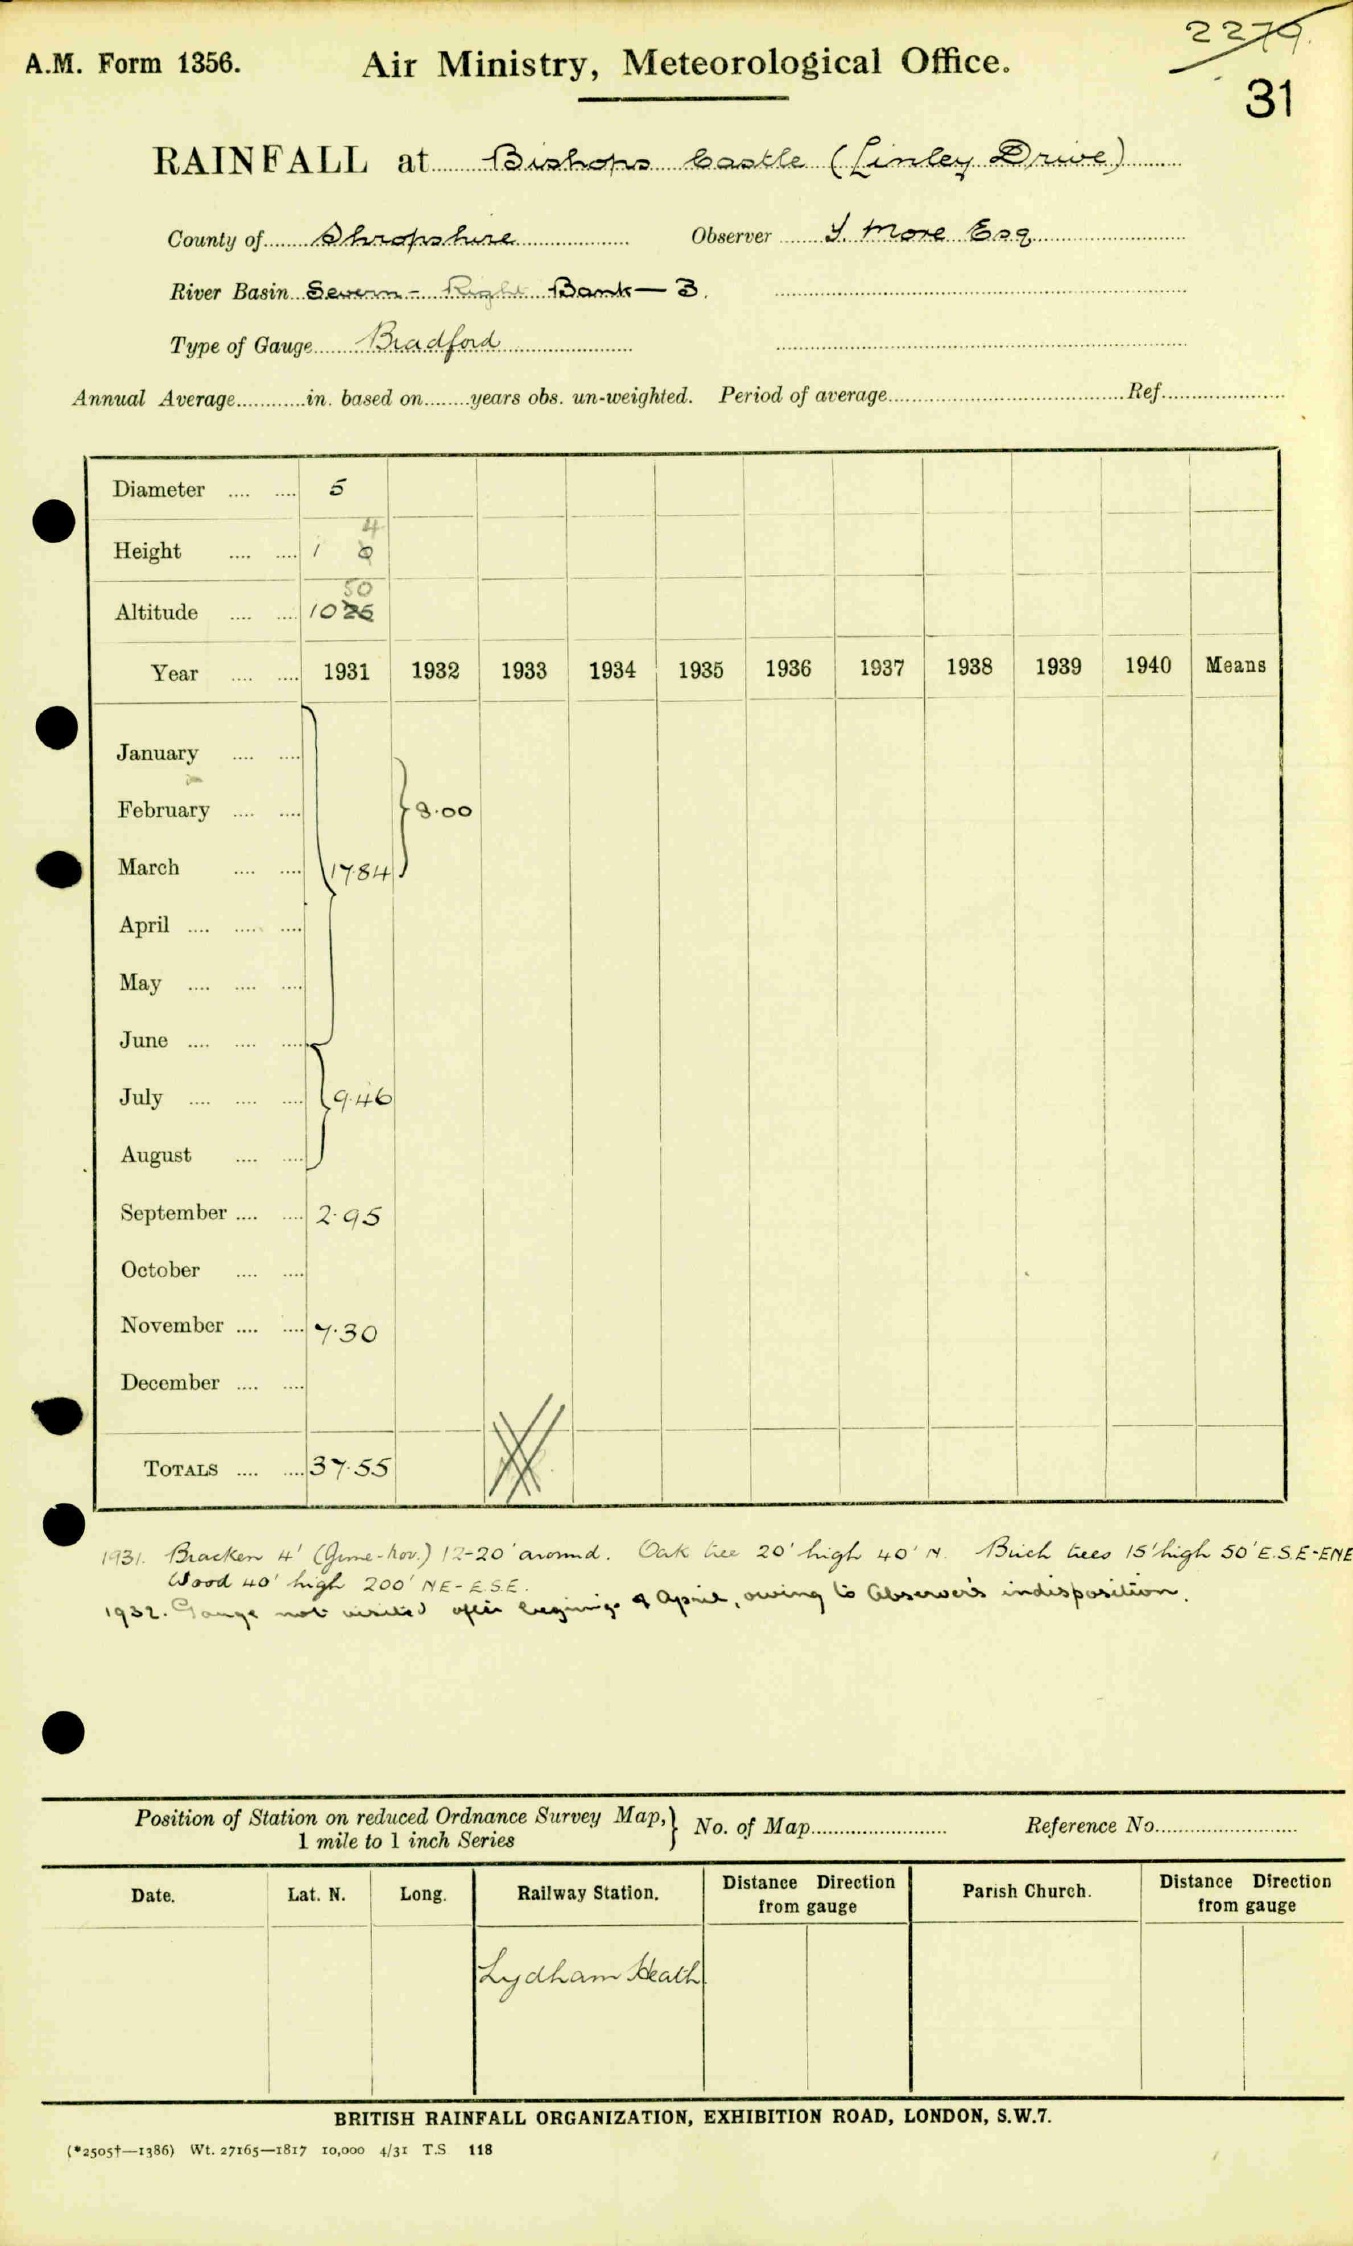 2279.
A.M. Form 1356. Air Ministry, Meteorological Office.
31
RAINFALL at Bishops Castle (Linley Drive)
County of Shropshire Observer J More Esq
River Basin Severn - Right Bank - 3.
Type of Gauge Bradford
Annual Average............in. based on........years obs. un-weighted. Period of average.......... Ref..........
Diameter .... .... 5
4
Height .... .... 1 0
50
Altitude .... .... 1025
Year .... .... 1931 1932 1933 1934 1935 1936 1937 1938 1939 1940 Means
January .... ....
February .... .... 8.00
March .... .... 17.84
April .... .... ....
May .... .... ....
June .... .... ....
July .... .... .... 9.46
August .... ....
September .... .... 2.95
October .... ....
November .... .... 7.30
December .... ....
TOTALS .... .... 37.55
1931. Bracken 4' (June-Nov.) 12-20' around. Oak tree 20' high 40' N. Birch trees 15' high 50' E.S.E-ENE
Wood 40' high 200' NE-E.S.E.
1932. Gauge not visited after beginning of April, owing to Observer's indisposition.
Position of Station on reduced Ordnance Survey Map,} No. of Map.......... Reference No..........
1 mile to 1 inch Series
Date. Lat. N. Long. Railway Station. Distance Direction from gauge Parish Church. Distance Direction from gauge
Lydham Heath
BRITISH RAINFALL ORGANIZATION, EXHIBITION ROAD, LONDON, S.W.7.
(*2505†—1386) Wt. 27165—1817 10,000 4/31 T.S 118